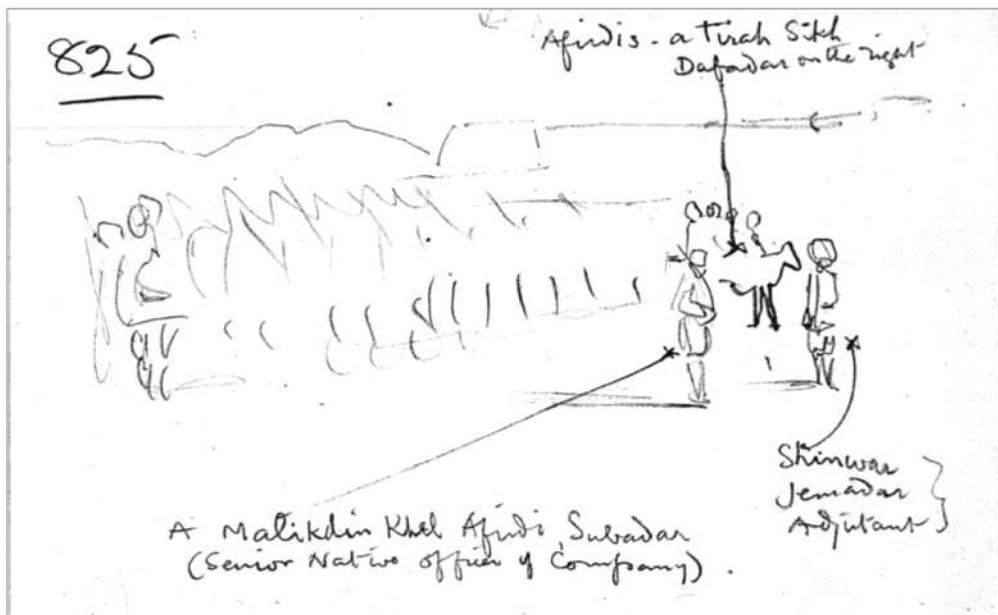 825
Afridis - a Tirah Sikh
Dafadar on the right
Shinwar
Jemadar
Adjutant
A Malikdin Khel Afridi Subadar
(Senior Native officer of Company).